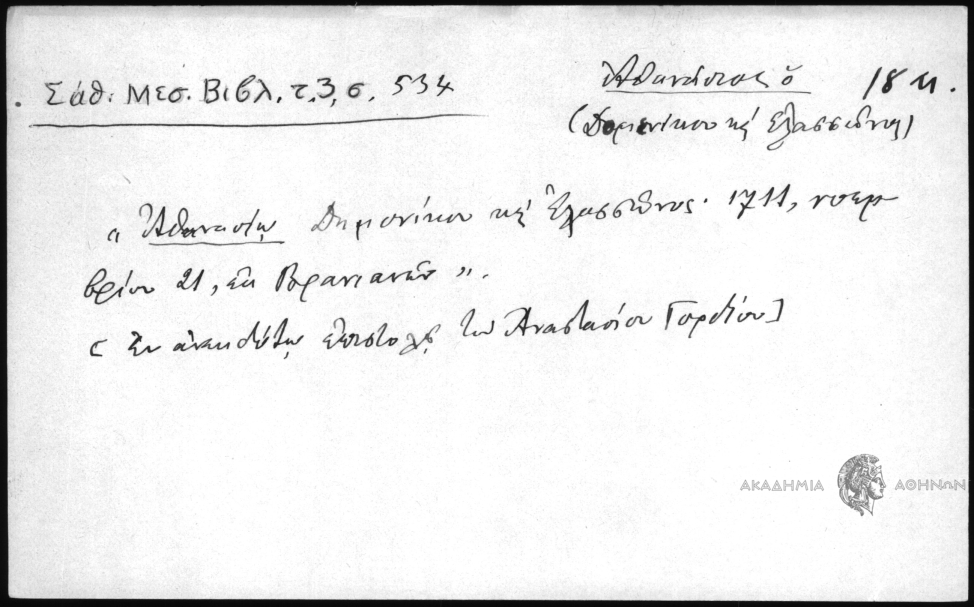 Σάθ. Μεσ. Βιβλ. τ. 3, σ. 534
Ἀθανάσιος ὁ
18 αι.
(Δομενίκου κ Ἐλασσῶνος)
"Ἀθανασίῳ Δημονίκου κ Ἐλασσῶνος. 1711, νοεμ-
βρίου 21, ἐκ Βρανιανῶν".
[Ἐν ἀνεκδότῳ ἐπιστολῇ τοῦ Ἀναστασίου Γορδίου]
ΑΚΑΔΗΜΙΑ ΑΘΗΝΩΝ